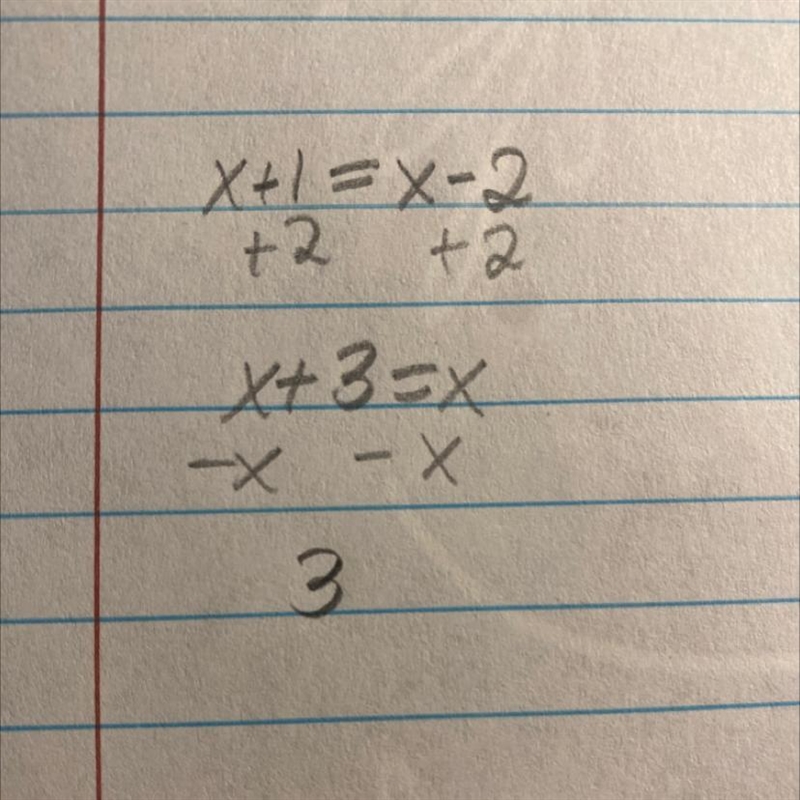 x+1=x-2
+2 +2
x+3=x
-x -x
3